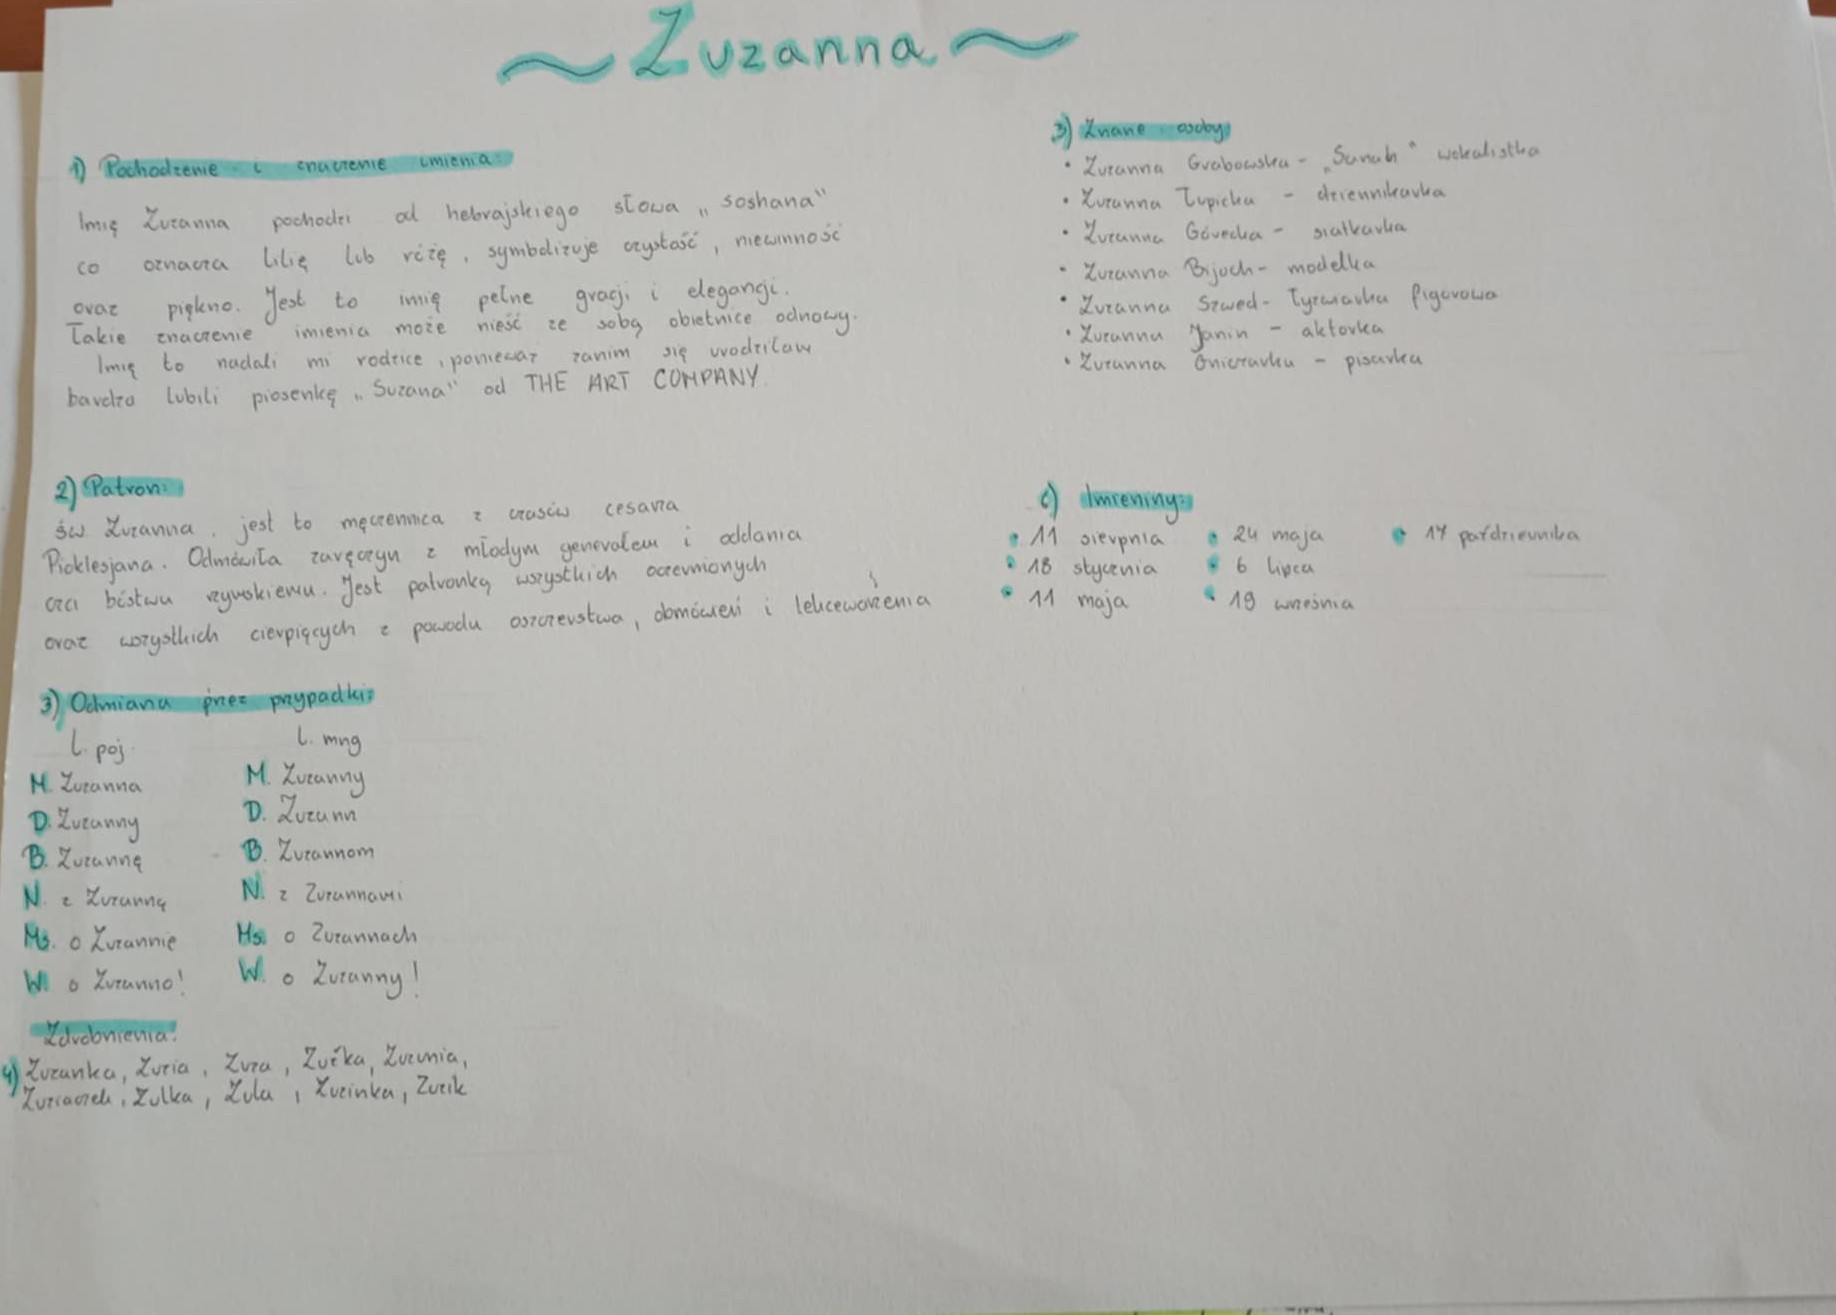 ~ Zuzanna ~
1) Pochodzenie i znaczenie imienia:
Imię Zuzanna pochodzi od hebrajskiego słowa „soshana"
co oznacza lilię lub różę, symbolizuje czystość, niewinność
oraz piękno. Jest to imię pełne gracji i elegancji.
Takie znaczenie imienia może nieść ze sobą obietnice odnowy.
Imię to nadali mi rodzice, ponieważ zanim się urodziłam
bardzo lubili piosenkę „Suzana" od THE ART COMPANY.
2) Patron:
św. Zuzanna, jest to męczennica z czasów cesarza
Dioklesjana. Odmówiła zaręczyn z młodym generałem i oddania
czci bóstwu rzymskiemu. Jest patronką wszystkich oczernionych
oraz wszystkich cierpiących z powodu oszczerstwa, obmówień i lekceważenia
3) Odmiana przez przypadki:
l. poj. l. mng
M. Zuzanna M. Zuzanny
D. Zuzanny D. Zuzann
B. Zuzannę B. Zuzannom
N. z Zuzanną N. z Zuzannami
Ms. o Zuzannie Ms. o Zuzannach
W. o Zuzanno! W. o Zuzanny!
Zdrobnienia:
4) Zuzanka, Zuzia, Zuza, Zuźka, Zuzunia,
Zuziaczek, Zulka, Zula, Zuzinka, Zuzik
3) Znane osoby
• Zuzanna Grabowska - „Sanah" wokalistka
• Zuzanna Łupicka - dziennikarka
• Zuzanna Górecka - siatkarka
• Zuzanna Bijoch - modelka
• Zuzanna Szwed - łyżwiarka figurowa
• Zuzanna Janin - aktorka
• Zuzanna - pisarka
6) Imieniny:
• 11 sierpnia • 24 maja • 17 października
• 18 stycznia • 6 lipca
• 11 maja • 19 września